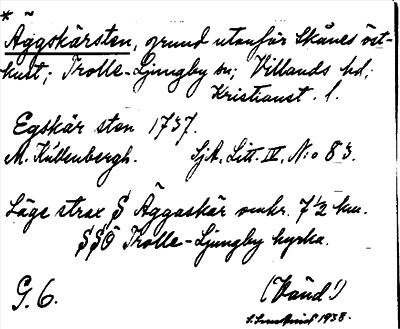 *
Äggskärsten, grund utanför Skånes öst-
kust; Trolle-Ljungby sn; Villands hd;
Kristianst. l.
Egskär sten 1737.
M. Kullenbergh. SjA, Litt. IV, N:o 83.
Läge strax § Äggaskär omkr. 7 1/2 km.
§§Ö Trolle-Ljungby kyrka.
G. 6. (Vänd!)
1938.